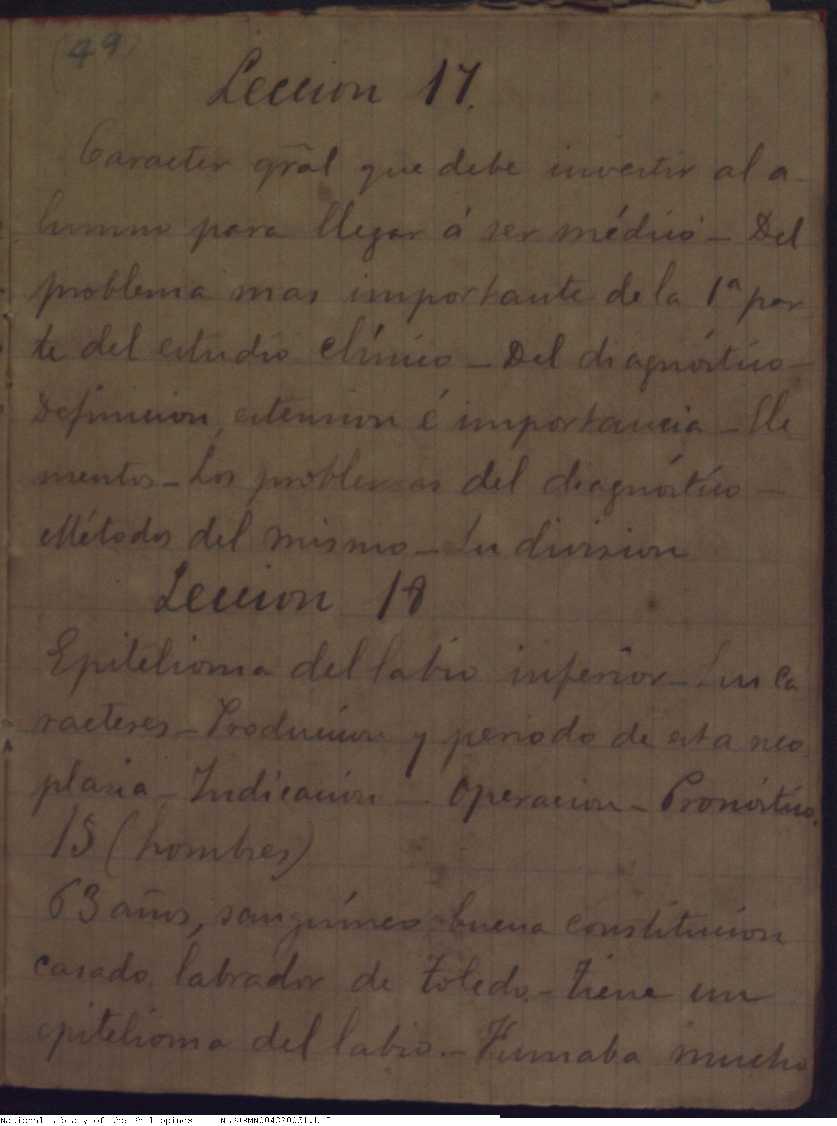 (49)
Leccion 17.
Caracter gral que debe investir al a-
lumno para llegar á ser médico - Del
problema mas importante de la 1ª par
te del estudio clínico - Del diagnóstico -
Definicion, estension é importancia - Ele
mentos - Los problemas del diagnóstico -
Métodos del mismo - Su division
Leccion 18
Epitelioma del labio inferior - Sus ca
racteres - Producción y periodo de esta neo
plasia - Indicación - Operacion - Pronóstico.
15 (hombres)
63 años, sanguíneo buena constitucion
casado, labrador de Toledo - tiene un
epitelioma del labio. - Fumaba mucho
National Library of the Philippines